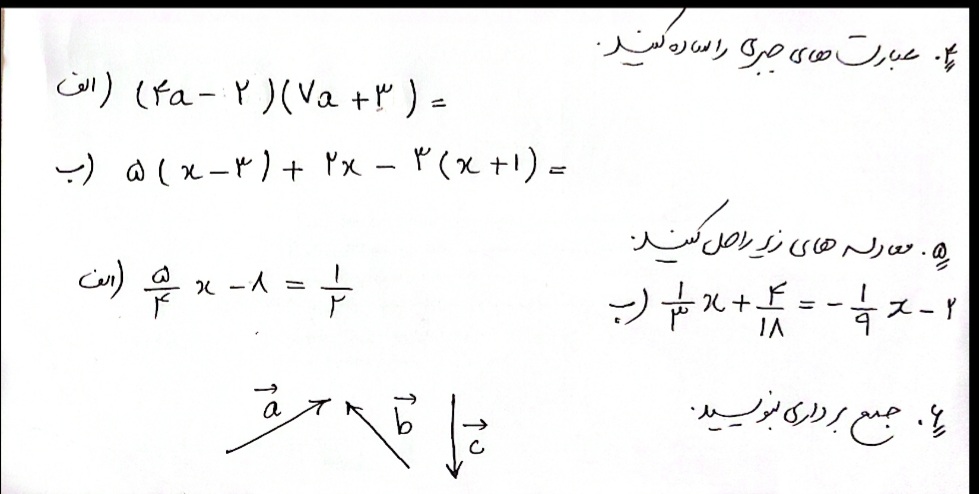 ۴. عبارت های جبری را ساده کنید.
الف) (۴a - ۲)(۷a + ۳) =
ب) ۵(x - ۳) + ۲x - ۳(x + ۱) =
۵. معادله های زیر را حل کنید.
الف) ۵/۴ x - ۸ = ۱/۲
ب) ۱/۳ x + ۴/۱۸ = - ۱/۹ x - ۲
۶. جمع برداری بنویسید.
a⃗ b⃗ c⃗